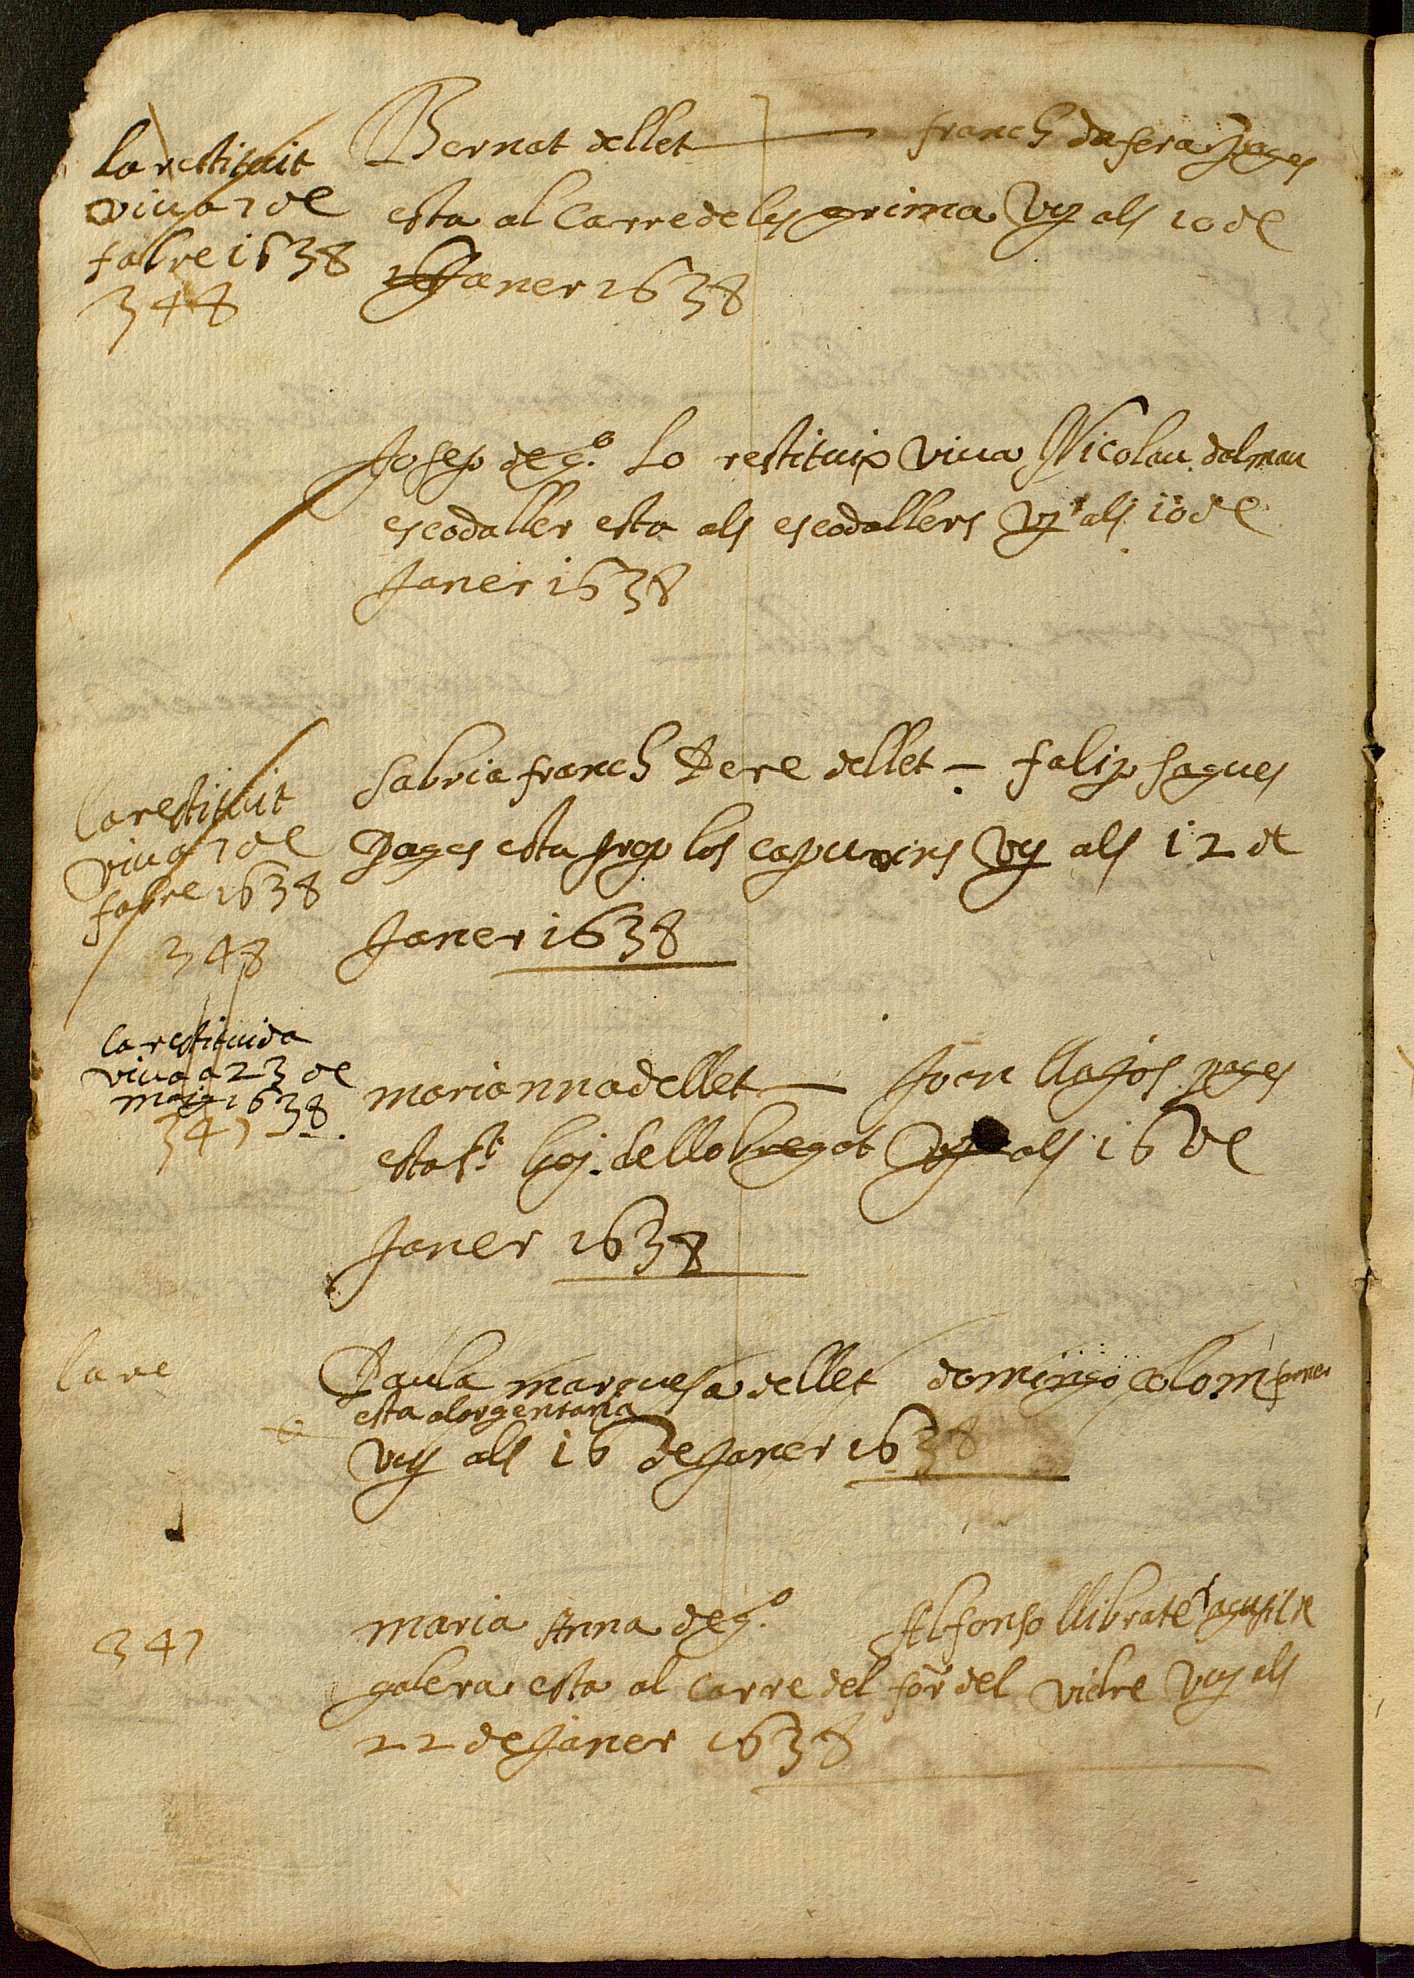 la restituit
viua 7 de
fabre 1638
348
Bernat dellet — franch dafera pages
esta al Carre de les grima Vy als 10 de
Janer 1638
Josep deg.º Lo restituix viua Nicolau dalmau
escodaller esta als escodallers Vy als 10 de
Janer 1638
la restituit
viua 7 de
fabre 1638
348
Sabria franch Pere dellet — falip sagues
pages esta prop los capuxins Vy als 12 de
Janer 1638
la restituida
viua a 23 de
maig 1638
347
marianna dellet — Joan llajos pages
esta st boj. de llobregat Vy als 16 de
Janer 1638
lare
Paula marquesa dellet domingo colom
esta alargentaria
Vuy als 16 de Janer 1638
347
maria Anna deg.º Alfonso llibrate agusil de
galera esta al carre del forn del vidre Vuy als
22 de Janer 1638